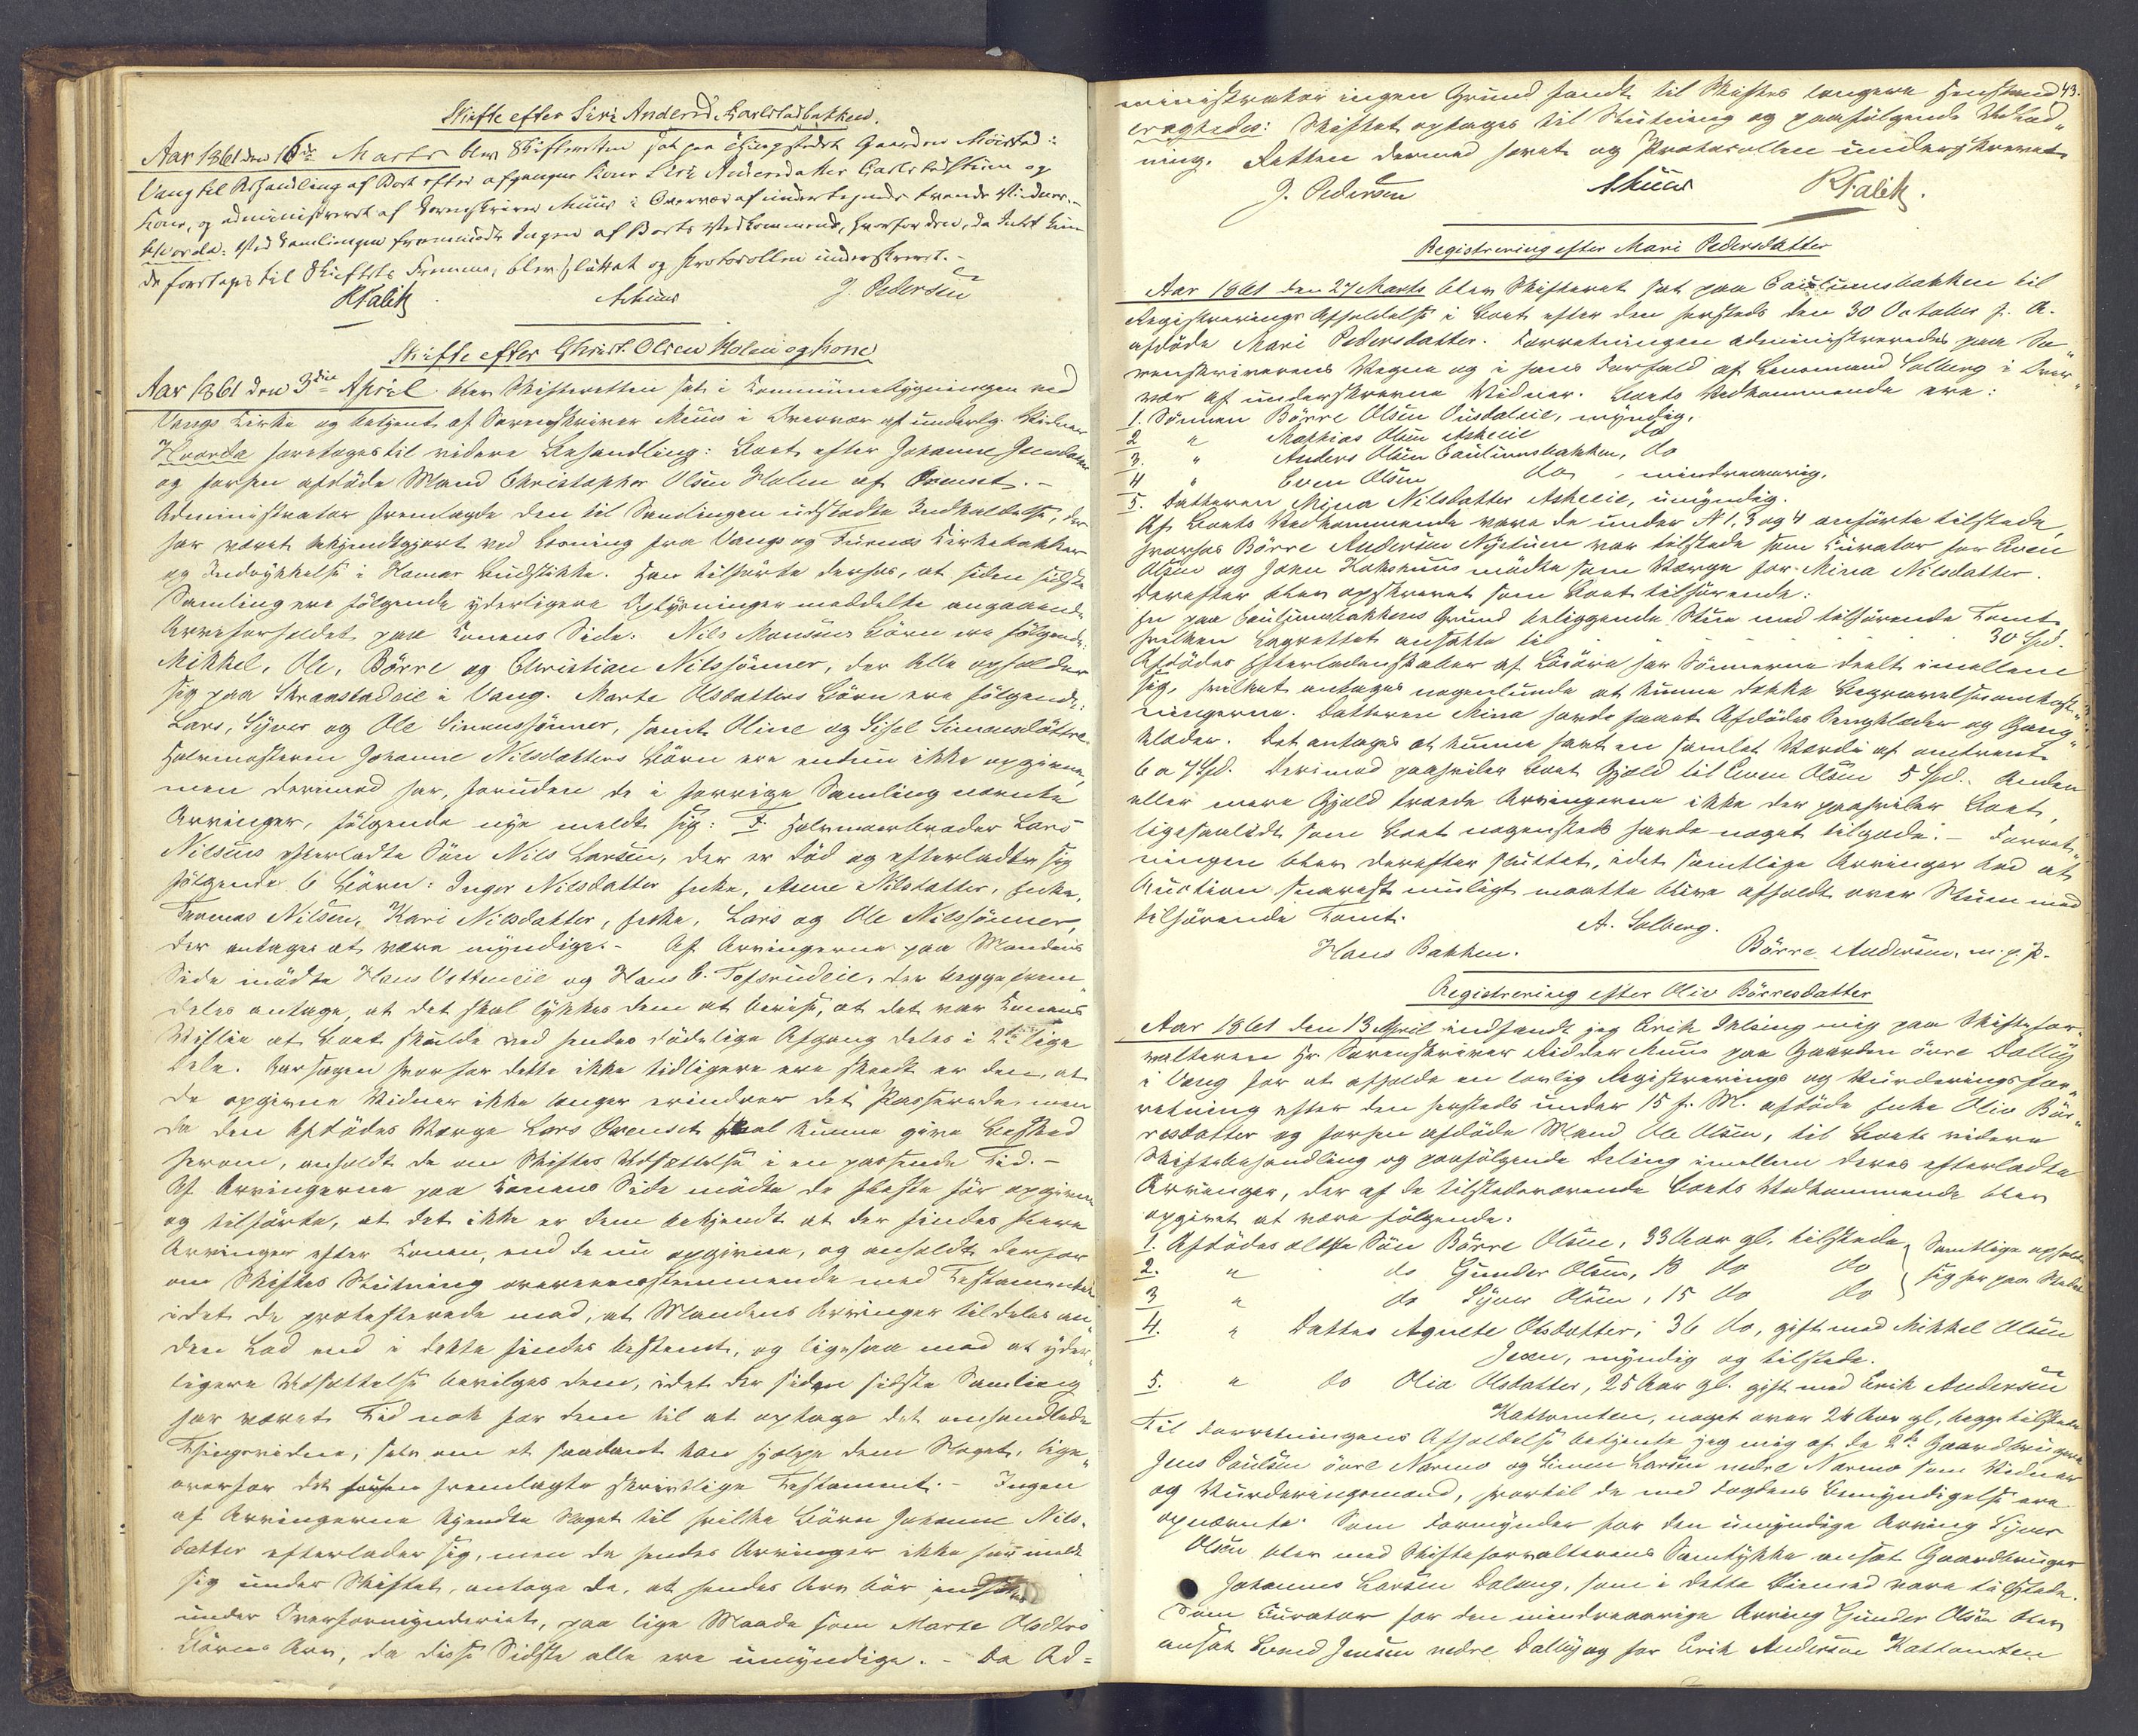 Skifte efter Siri Andersd. Karlstadbakken.
Aar 1861 den 16de Marts blev Skifteretten sat paa Thingstedet Gaarden Moistad i
Vang til Behandling af Boet efter afgangne Kone Siri Andersdatter
Kone, og administreret af Sorenskriver Muus i Overvær af undertegnede tvende Vidner.
Hvorda: Ved Samlingen fremmødte Ingen af Boets Vedkommende, hvorfor den, da Intet kun
de foretages til Skiftets Fremme, blev sluttet og Protocollen underskrevet.-
RFalck Muus J. Pedersen
Skifte efter Christ. Olsen Holen og Kone
Aar 1861 den 3die April blev Skifteretten sat i Communebygningen ved
Vangs Kirke og betjent af Sorenskriver Muus i Overvær af underteg. Vidner
Hvorda foretages til videre Behandling: Boet efter Johanne
og forhen afdøde Mand Christopher Olsen Holen af .-
Administrator fremlagde den til Samlingen udstedte Indkaldelse, der
har været bekjendtgjort ved Læsning fra Vangs og Furnæs Kirkebakker
og Indrykkelse i Hamar Budstikke. Han tilførte derhos, at siden sidste
Samling ere følgende yderligere Oplysninger meddelte angaaende
Arveforholdet paa Konens Side. Nils Monsens Børn ere følgende:
Mikkel, Ole, Børre og Christian Nilssønner, der Alle opholder
sig paa i Vang. Marte Olsdatters Børn ere følgende:
Lars, Syver og Ole Simenssønner, samt Oline og Sisel Simensdøttre.
Halvmosteren Johanne Nilsdatters Børn ere endnu ikke opgivne,
men derimod har, foruden de i forrige Samling nævnte
Arvinger, følgende nye meldt sig: F. Halvmorbroder Lars
Nilsens efterladte Søn Nils Larsen, der er død og efterladte sig
følgende 6 Børn: Inger Nilsdatter Enke, Anne Nilsdatter, Enke,
Thomas Nilsen, Kari Nilsdatter, Enke, Lars og Ole Nilssønner,
der antages at være myndige.- Af Arvingerne paa Mandens
Side mødte Hans og Hans C. der begge frem"
deles antage, at det skal lykkes dem at bevise, at det var Konens
Villie at Boet skulde ved hendes dødelige Afgang deles i 2de lige
Dele. Aarsagen hvorfor dette ikke tidligere ere skeedt er den, at
de opgivne Vidner ikke længer erindrer det Passerede, men
da den Afdødes Værge Lars skal kunne give Besked
herom, anholdt de om Skiftets Udsættelse i en passende Tid.-
Af Arvingerne paa Konens Side mødte de fleste før opgivne
og tilførte, at det ikke er dem bekjendt at der findes flere
Arvinger efter Konen, end de nu opgivne, og anholdt derfor
om Skiftets Slutning overeensstemmende med Testamentet
idet de protesterede mod, at Mandens Arvinger tildeles an"
den Lod end i dette findes bestemt, og ligesaa mod at yder"
ligere Udsættelse bevilges dem, idet der siden sidste Samling
har været Tid nok for dem til at optage det omhandlede
Thingsvidne, selv om et saadant kan hjælpe dem Noget, lige"
overfor det forhen fremlagte skriftlige Testament.- Ingen
af Arvingerne kjendte Noget til hvilke Børn Johanne Nils"
datter efterlader sig, men da hendes Arvinger ikke har meldt
sig under Skiftet, antage de, at hendes Arv bør indsættes
under Overformynderiet, paa lige Maade som Marte Olsdtrs
Børns Arv, da disse Sidste alle ere umyndige.- Da Ad=
43.
ministrator ingen Grund fandt til Skiftets længere Henstand
eragtedes: Skiftet optages til Slutning og paafølgende Udlod"
ning. Retten dermed hævet og Protocollen underskrevet
J. Pedersen Muus RFalck.
Registrering efter Mari Pedersdatter
Aar 1861 den 27 Marts blev Skifteret sat paa Caulumsbakken til
Registrerings Afholdelse i Boet efter den hersteds den 30 October f. A.
afdøde Mari Pedersdatter. Forretningen administreredes paa So"
renskriverens Vegne og i hans Forfald af Lensmand Solberg i Over"
vær af underskrevne Vidner. Boets Vedkommende ere:
1. Sønnen Børre Olsen , myndig.
2 " Mathias Olsen Askeeie do
3. " Anders Olsen Caulumsbakken, do
4 " Even Olsen do , mindreaarig.
5. Datteren Mina Nilsdatter Askeeie, umyndig.
Af Boets Vedkommende vare de under N 1, 3 og 4 anførte tilstede,
hvorhos Børre Andersen Nystuen var tilstede som Curator for Even
Olsen og John mødte som Værge for Mina Nilsdatter.
Derefter blev opskrevet som Boet tilhørende:
En paa Caulumsbakkens Grund beliggende Stue med tilhørende Tomt
hvilken Lagrettet ansatte til - - - 30 Spd.
Afdødes Efterladenskaber af Løsøre har Sønnerne deelt imellem
sig, hvilket antages nogenlunde at kunne dække Begravelsesomkost"
ningerne. Datteren Mina havde faaet Afdødes Sengklæder og Gang"
klæder. Det antages at kunne havt en samlet Værdi af omtrent
6 a 7 Spd. Derimod paahviler Boet Gjæld til Even Olsen 5 Spd. Anden
eller mere Gjæld troede Arvingerne ikke der paahviler Boet,
ligesaalidt som Boet nogensteds havde noget tilgode.- Forret"
ningen blev derefter sluttet, idet samtlige Arvinger bad at
Auction snarest muligt maatte blive afholdt over Stuen med
tilhørende Tomt.
A. Solberg.
Hans Bakken. Børre Andersen, m. p. P.
Registrering efter Oliv Børresdatter
Aar 1861 den 13 April indfandt jeg Erik mig paa Skiftefor"
valteren Hr Sorenskriver Ridder Muus paa Gaarden øvre Dalby
i Vang for at afholde en lovlig Registrerings og Vurderingsfor"
retning efter den hersteds under 15 f. M. afdøde Enke Oliv Bør"
resdatter og forhen afdøde Mand Ole Olsen, til Boets videre
Skiftebehandling og paafølgende Deling imellem deres efterladte
Arvinger, der af de tilstedeværende Boets Vedkommende blev
opgivet at være følgende:
1. Afdødes ældste Søn Børre Olsen, 33 Aar gl. tilstede } Samtlige opholde
2. " do Gunder Olsen, 18 do do } sig her paa Stedet
3 " do Syver Olsen, 15 do do
4. " Datter Agnete Olsdatter, 36 do, gift med Mikkel Olsen
, myndig og tilstede.
5. " do Olia Olsdatter, 25 Aar gl. gift med Erik Andersen
Kattomten, noget over 24 Aar gl, begge tilstede
Til Forretningens Afholdelse betjente jeg mig af de 2de Gaardbrugere
Jens Poulsen øvre Narmo og Simen Larsen nedre Narmo som Vidner
og Vurderingsmænd, hvortil de med Fogdens Bemyndigelse ere
opnævnte. Som Formynder for den umyndige Arving Syver
Olsen blev med Skifteforvalterens Samtykke ansat Gaardbruger
Johannes Larsen Daleng, som i dette Øiemed vare tilstede.
Som Curator for den mindreaarige Arving Gunder Olsen blev
ansat Svend Jensen nedre Dalby og for Erik Andersen Kattomten